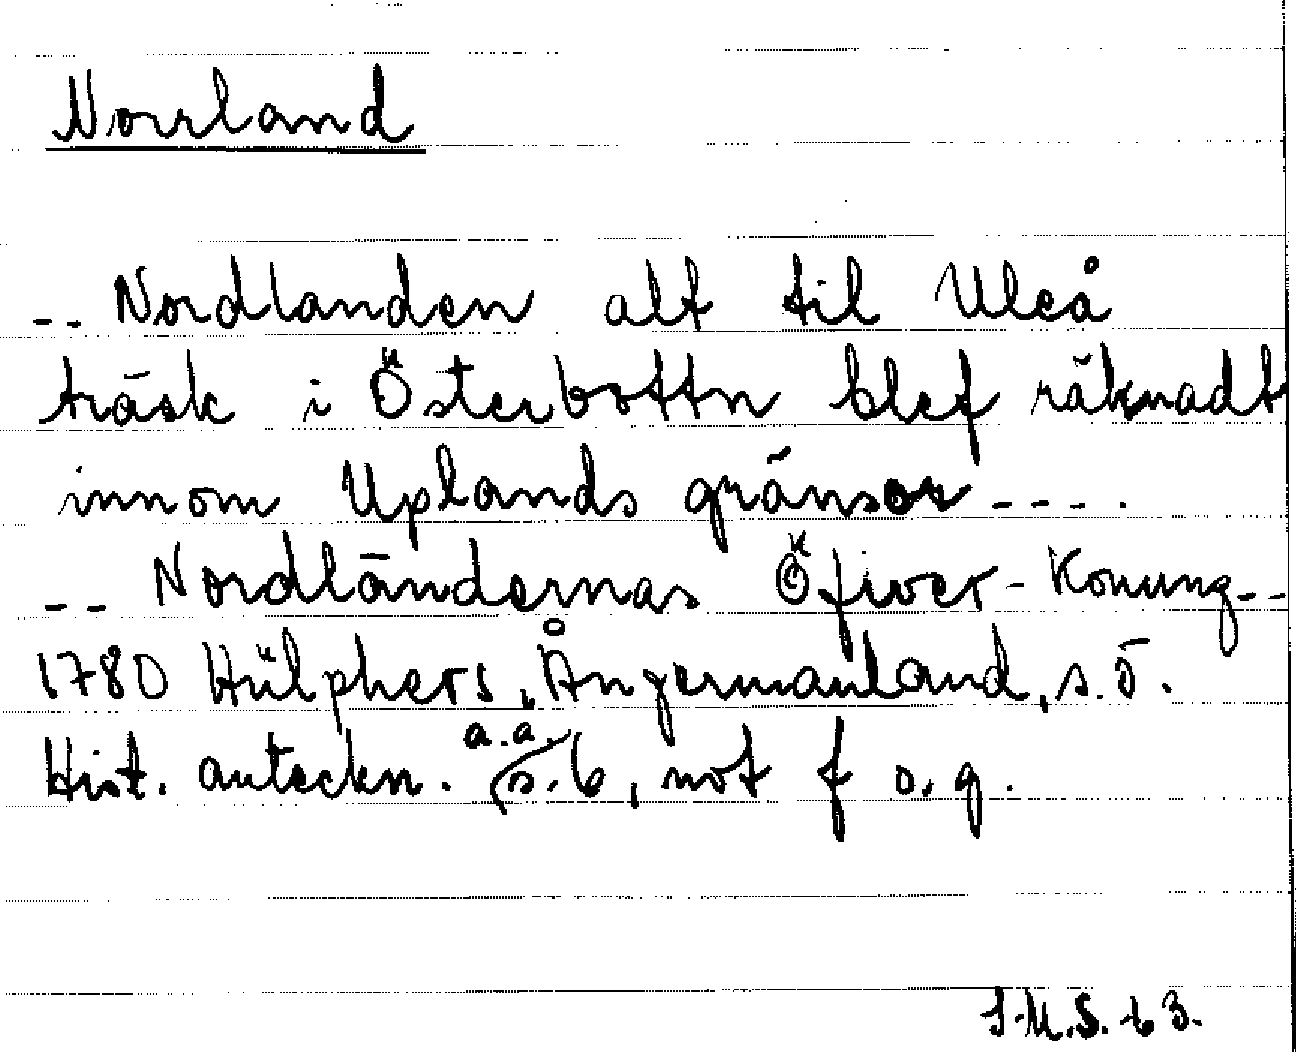 Norrland
-- Nordlanden alt til Uleå
träsk i Österbottn blef räknadt
innom Uplands gränsor ----.
-- Nordländernas Öfwer-Konung--
1780 Hülphers, Ångermanland, s. 5.
Hist. anteckn. a.a. s. 6, not f o. g.
J.M.S. 63.